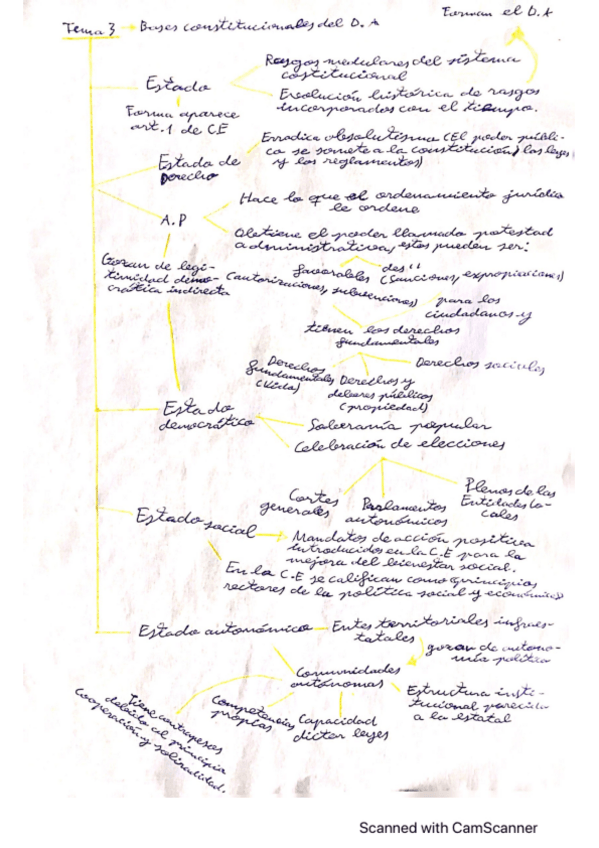 Tema 3 → Bases constitucionales del D.A
Forman el D.A
Estado
Rasgos medulares del sistema
costitucional
Evolución histórica de rasgos
incorporados con el tiempo.
Forma aparece
art.1 de CE
Estado de
Derecho
Erradica absolutismo (El poder públi-
co se somete a la constitución, las leyes
y los reglamentos)
A.P
Hace lo que el ordenamiento jurídico
le ordene
Obtiene el poder llamado potestad
administrativa, estos pueden ser:
Gozan de legi-
timidad demo-
crática indirecta
favorables
(autorizaciones, subvenciones)
des"
(sanciones, expropiaciones)
para los
ciudadanos y
tienen los derechos
fundamentales
Derechos
fundamentales
(vida)
Derechos y
deberes públicos
(propiedad)
Derechos sociales
Estado
democrático
Soberanía popular
Celebración de elecciones
Cortes
generales
Parlamentos
autonómicos
Plenos de las
Entidades lo-
cales
Estado social
Mandatos de acción positiva
introducidos en la C.E para la
mejora del bienestar social.
En la C.E se califican como "principios
rectores de la política social y económica"
Estado autonómico
Entes territoriales infraes-
tatales
gozan de autono-
mía política
Comunidades
autónomas
Estructura insti-
tucional parecida
a la estatal
Capacidad
dictar leyes
Competencias
propias
Tiene contrapesos
debido al principio
cooperación y solidaridad.
Scanned with CamScanner